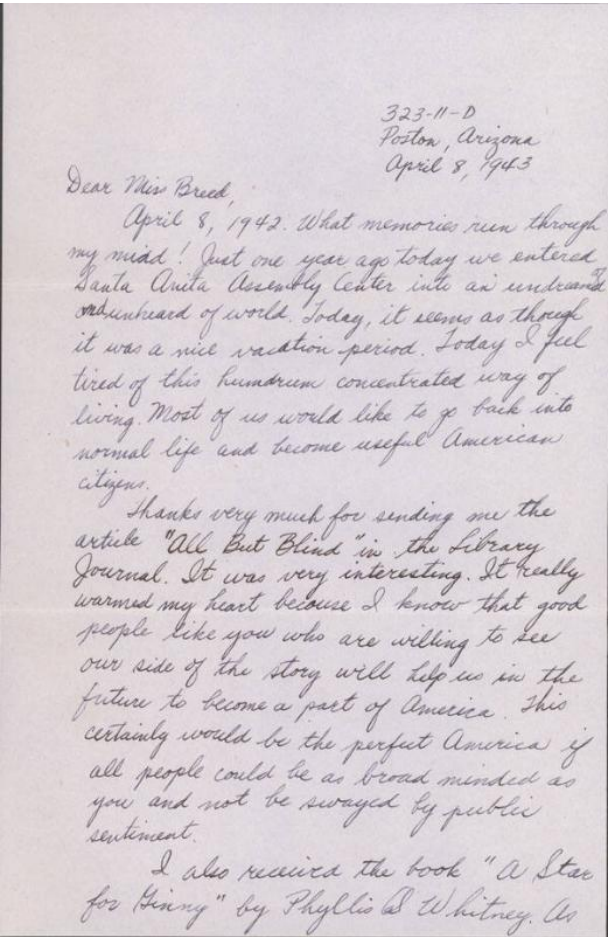 323-11-D
Poston, Arizona
April 8, 1943
Dear Miss Breed,
April 8, 1942. What memories run through
my midd! Just one year ago today we entered
Santa Anita Assembly Center into an undreamed of
and unheard of world. Today, it seems as though
it was a nice vacation period. Today I feel
tired of this humdrum concentrated way of
living. Most of us would like to go back into
normal life and become useful American
citizens.
Thanks very much for sending me the
article "All But Blind" in the Library
Journal. It was very interesting. It really
warmed my heart because I know that good
people like you who are willing to see
our side of the story will help us in the
future to become a part of America. This
certainly would be the perfect America if
all people could be as broad minded as
you and not be swayed by public
sentiment.
I also received the book "A Star
for Ginny" by Phyllis Whitney. As